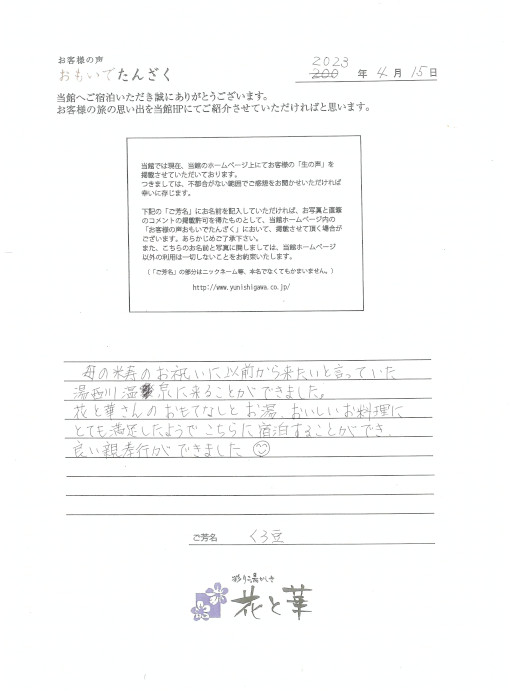 お客様の声
おもいでたんざく
2023
200 年 4月 15日
当館へご宿泊いただき誠にありがとうございます。
お客様の旅の思い出を当館HPにてご紹介させていただければと思います。
当館では現在、当館のホームページ上にてお客様の「生の声」を
掲載させていただいております。
つきましては、不都合がない範囲でご感想をお聞かせいただければ
幸いに存じます。
下記の「ご芳名」にお名前を記入していただければ、お写真と直筆
のコメントの掲載許可を得たものとして、当館ホームページ内の
「お客様の声おもいでたんざく」において、掲載させて頂く場合が
ございます。あらかじめご了承下さい。
また、こちらのお名前と写真に関しましては、当館ホームページ
以外の利用は一切しないことをお約束いたします。
（「ご芳名」の部分はニックネーム等、本名でなくてもかまいません。）
http://www.yunishigawa.co.jp/
母の米寿のお祝いに以前から来たいと言っていた
湯西川温泉に来ることができました。
花と華さんのおもてなしとお湯、おいしいお料理に
とても満足したようで こちらに宿泊することができ、
良い親孝行ができました
ご芳名 くろ豆
彩り湯かしき
花と華